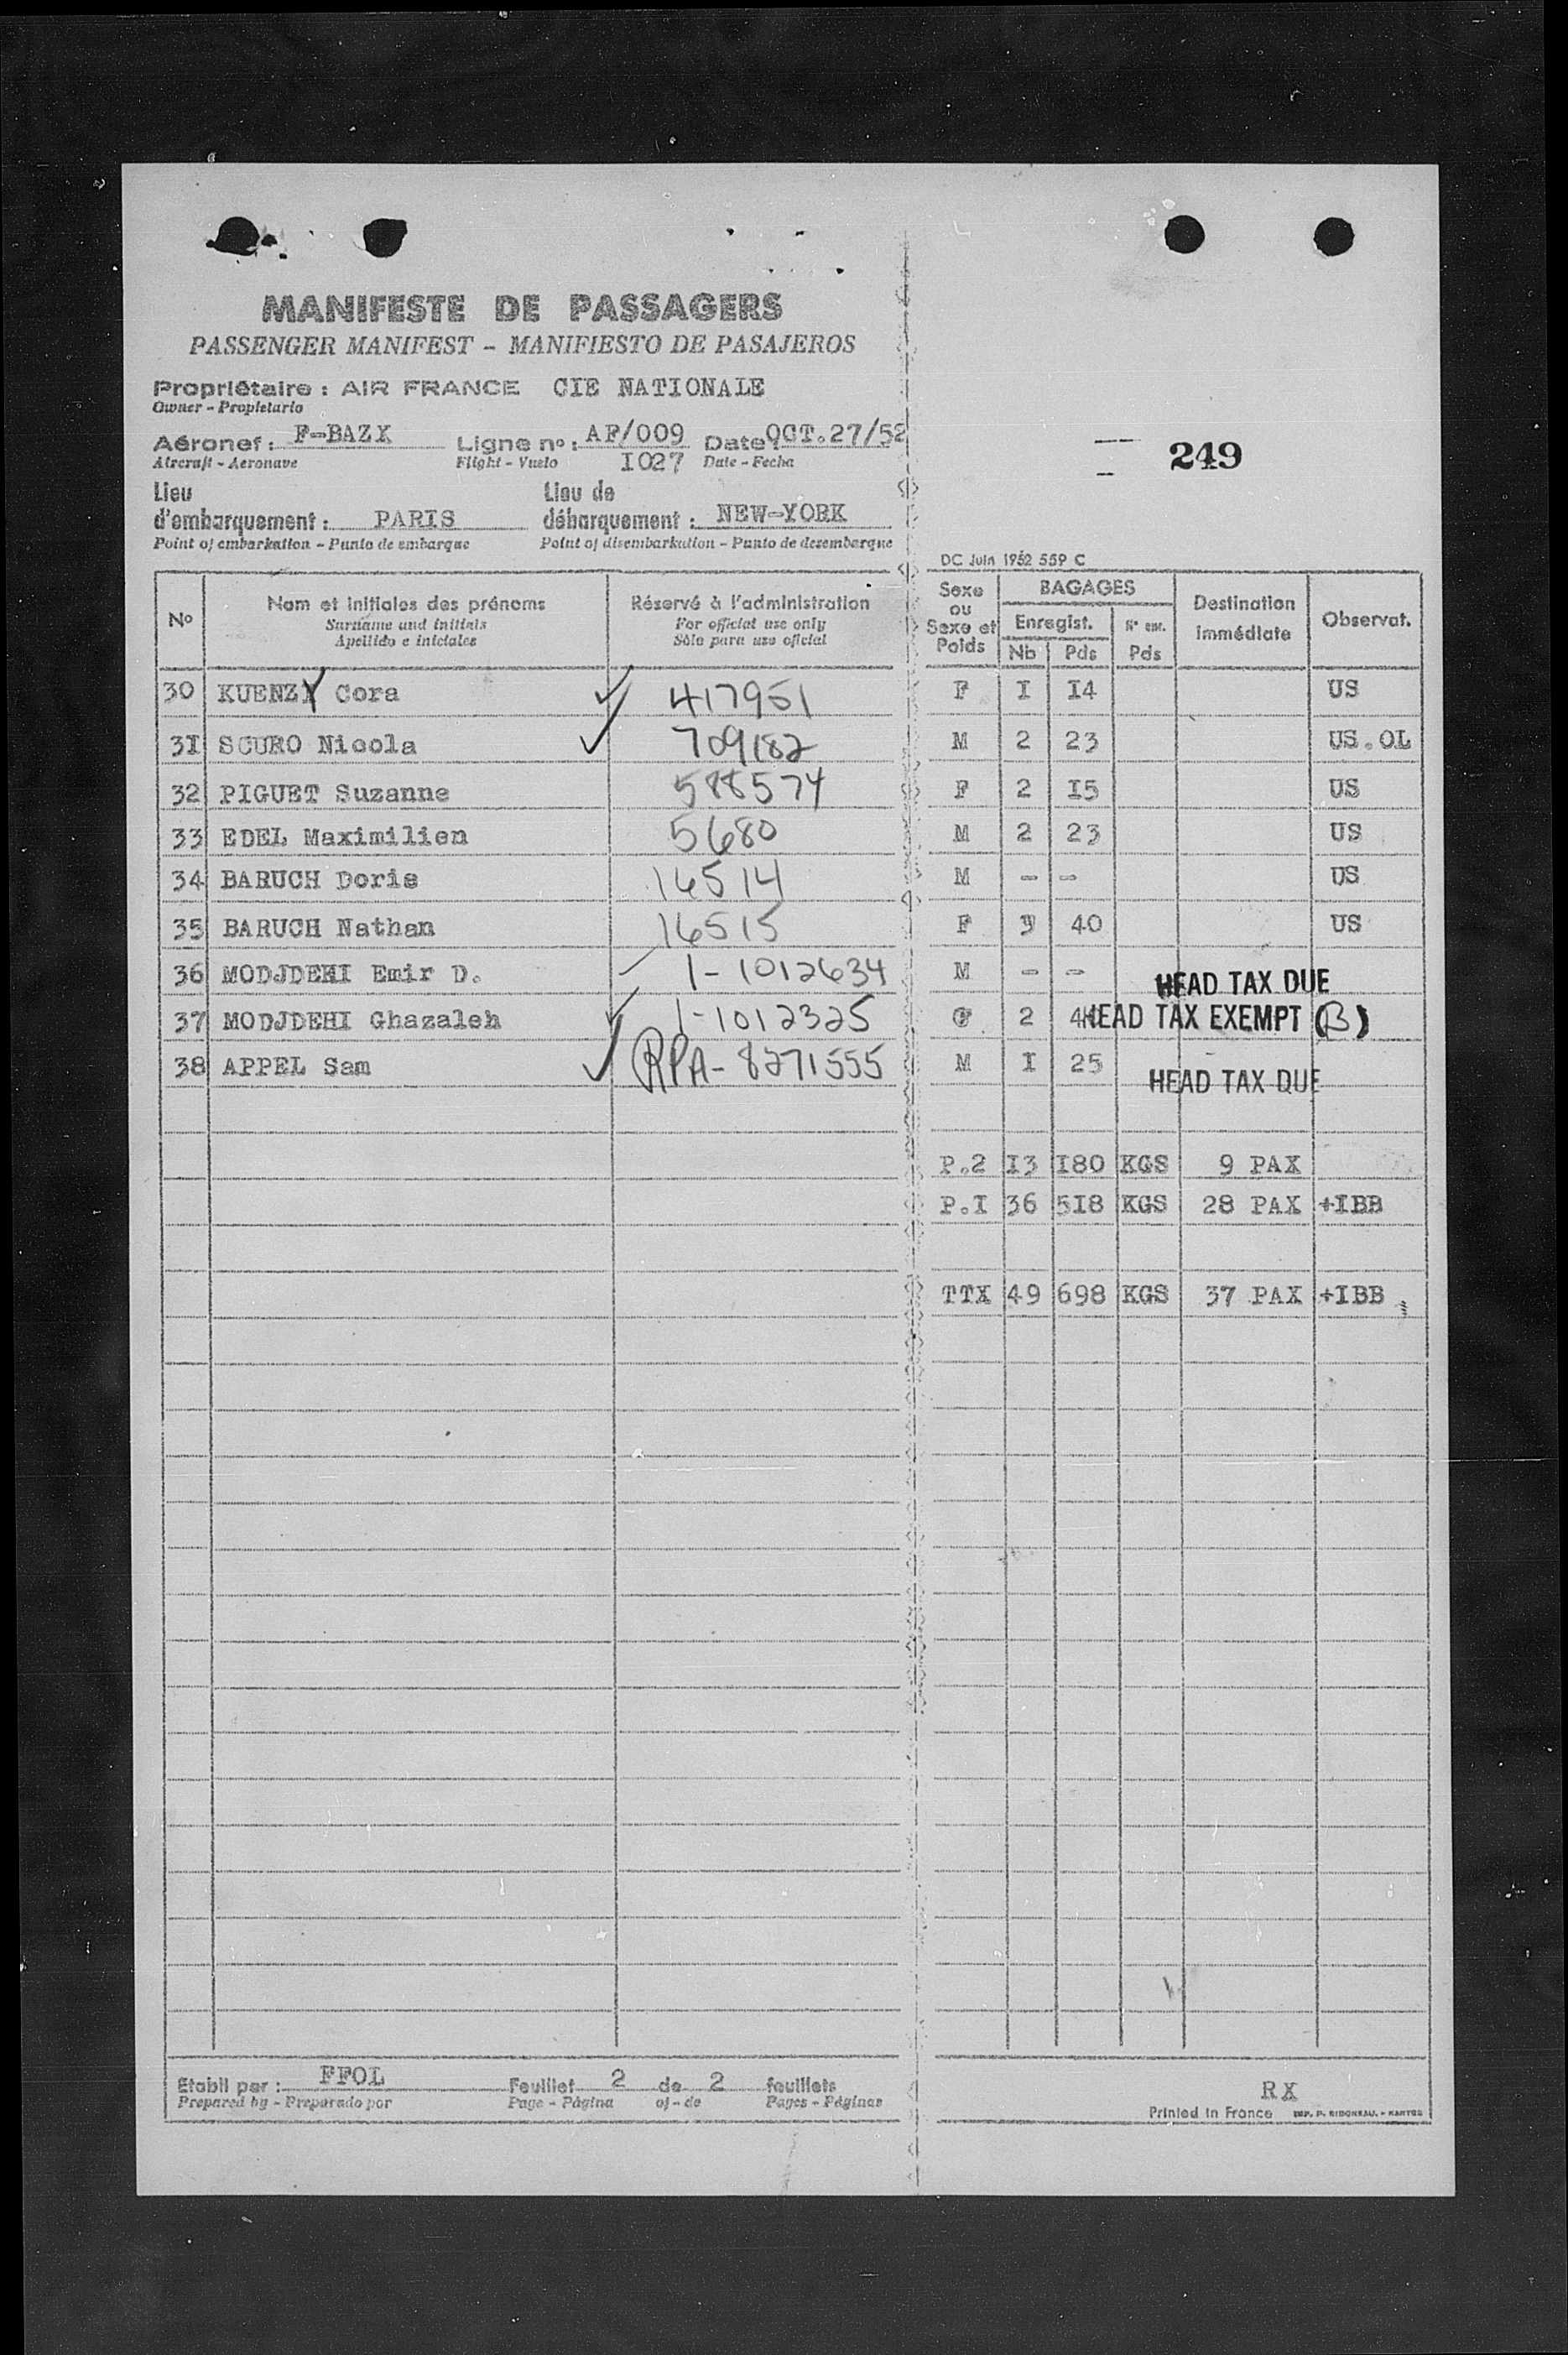 MANIFESTE DE PASSAGERS
PASSENGER MANIFEST - MANIFIESTO DE PASAJEROS
Propriétaire : AIR FRANCE CIE NATIONALE
Owner - Propietario
Aéronef : F-BAZX Ligne nº : AF/009 Date OCT.27/52
Aircraft - Aeronave Flight - Vuelo I027 Date - Fecha
249
Lieu d'embarquement : PARIS Lieu de débarquement : NEW-YORK
Point of embarkation - Punto de embarque Point of disembarkation - Punto de desembarque
DC Juin 1952 559 C
Nº Nom et initiales des prénoms Réservé à l'administration Sexe ou Sexe et Poids BAGAGES Destination immédiate Observat.
Surname and initials For official use only Enregist. Nº enr.
Apellido e iniciales Sólo para uso oficial Nb Pds Pds
30 KUENZY Cora 417951 F I I4 US
3I SCURO Nicola 709182 M 2 23 US.OL
32 PIGUET Suzanne 588574 F 2 I5 US
33 EDEL Maximilien 5680 M 2 23 US
34 BARUCH Doris 16514 M - - US
35 BARUCH Nathan 16515 F 3 40 US
36 MODJDEHI Emir D. 1-1012634 M - - HEAD TAX DUE
37 MODJDEHI Ghazaleh 1-1012325 F 2 4 HEAD TAX EXEMPT (B)
38 APPEL Sam RPA-8271555 M I 25 HEAD TAX DUE
P.2 I3 I80 KGS 9 PAX
P.I 36 5I8 KGS 28 PAX +IBB
TTX 49 698 KGS 37 PAX +IBB
Etabli par : FFOL Feuillet 2 de 2 feuillets
Prepared by - Preparado por Page - Página of - de Pages - Páginas
RX
Printed in France